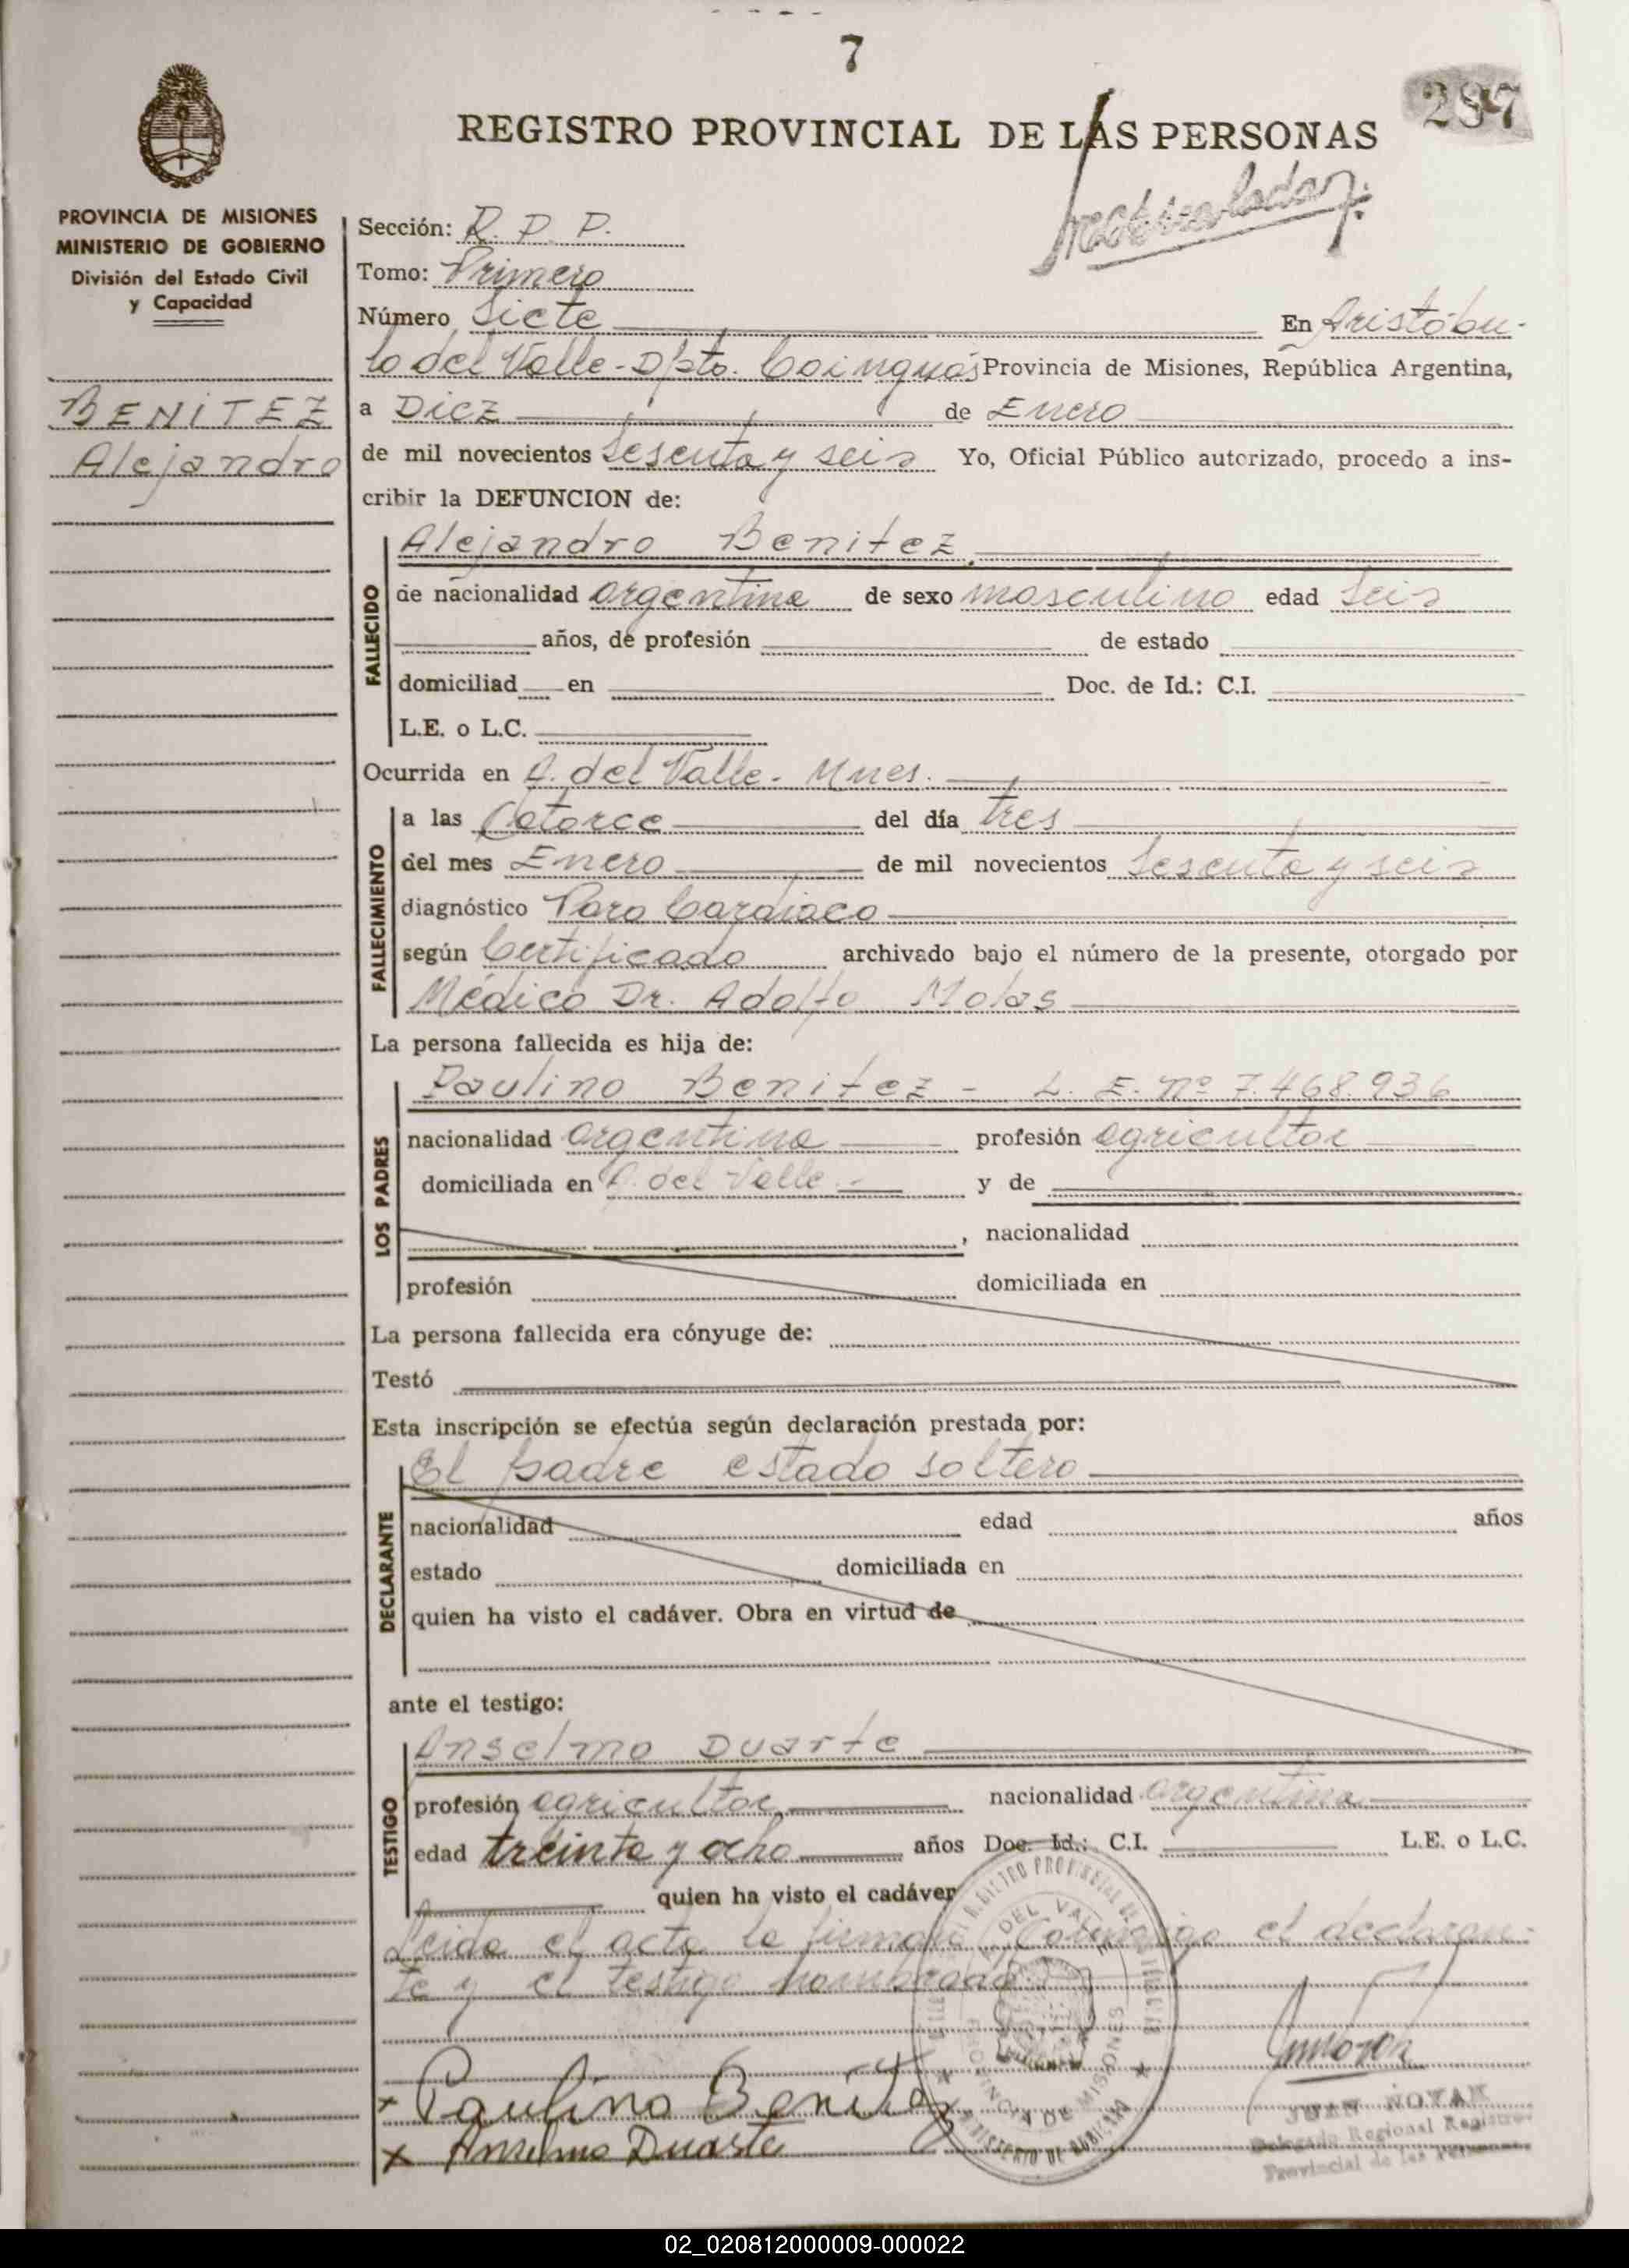 7
297
REGISTRO PROVINCIAL DE LAS PERSONAS
PROVINCIA DE MISIONES
MINISTERIO DE GOBIERNO
División del Estado Civil
y Capacidad
BENITEZ
Alejandro
Sección: R. P. P.
Tomo: Primero
Número Siete En Aristóbu-
lo del Valle - Dpto. Cainguás Provincia de Misiones, República Argentina,
a Diez de Enero
de mil novecientos sesenta y seis Yo, Oficial Público autorizado, procedo a ins-
cribir la DEFUNCION de:
Alejandro Benitez
FALLECIDO
de nacionalidad argentina de sexo masculino edad seis
años, de profesión de estado
domiciliad en Doc. de Id.: C.I.
L.E. o L.C.
Ocurrida en A. del Valle - Mnes.
FALLECIMIENTO
a las Catorce del día tres
del mes Enero de mil novecientos sesenta y seis
diagnóstico Paro Cardiaco
según Certificado archivado bajo el número de la presente, otorgado por
Médico Dr. Adolfo Molas
La persona fallecida es hija de:
LOS PADRES
Paulino Benitez - L. E. nº 7.468.936
nacionalidad argentina profesión agricultor
domiciliada en A. del Valle - y de
, nacionalidad
profesión domiciliada en
La persona fallecida era cónyuge de:
Testó
Esta inscripción se efectúa según declaración prestada por:
DECLARANTE
El padre estado soltero
nacionalidad edad años
estado domiciliada en
quien ha visto el cadáver. Obra en virtud de
ante el testigo:
TESTIGO
Anselmo Duarte
profesión agricultor, nacionalidad argentina
edad treinta y ocho años Doc. Id.: C.I. L.E. o L.C.
quien ha visto el cadáver
Leida el acta la firman conmigo el declaran-
te y el testigo nombrado
Paulino Benitez
Anselmo Duarte
JUAN NOVAK
Delegado Regional Registro
Provincial de las Personas
DEL VALLE
PROVINCIA DE MISIONES
MINISTERIO DE GOBIERNO
02_020812000009-000022